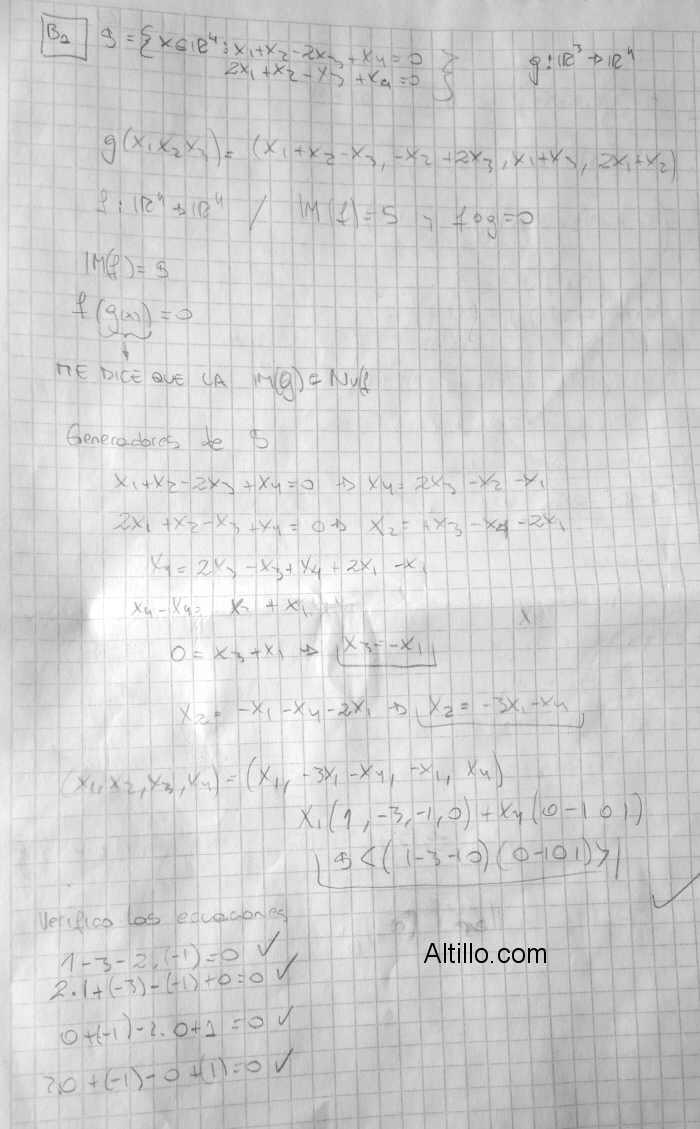 B2 S = {x∈ℝ⁴ : x₁+x₂-2x₃+x₄=0 g:ℝ³→ℝ⁴
2x₁+x₂-x₃+x₄=0}
g(x₁x₂x₃)= (x₁+x₂-x₃, -x₂+2x₃, x₁+x₃, 2x₁+x₂)
f:ℝ⁴→ℝ⁴ / IM(f)=S , fog=0
IM(f)=S
f(g(x))=0
ME DICE QUE LA IM(g)=Nuf
Generadores de S
x₁+x₂-2x₃+x₄=0 → x₄=2x₃-x₂-x₁
2x₁+x₂-x₃+x₄=0→ x₂=+x₃-x₄-2x₁
x₄=2x₃-x₃+x₄+2x₁-x₁
x₄-x₄= x₃+x₁
0=x₃+x₁ → x₃=-x₁
x₂=-x₁-x₄-2x₁ → x₂=-3x₁-x₄
(x₁,x₂,x₃,x₄)=(x₁, -3x₁-x₄, -x₁, x₄)
x₁(1,-3,-1,0)+x₄(0-1 0 1)
S<(1-3-10)(0-101)>
Verifico las ecuaciones
1-3-2.(-1)=0 ✓
2.1+(-3)-(-1)+0=0 ✓
0+(-1)-2.0+1=0 ✓
2.0+(-1)-0+(1)=0 ✓
Altillo.com